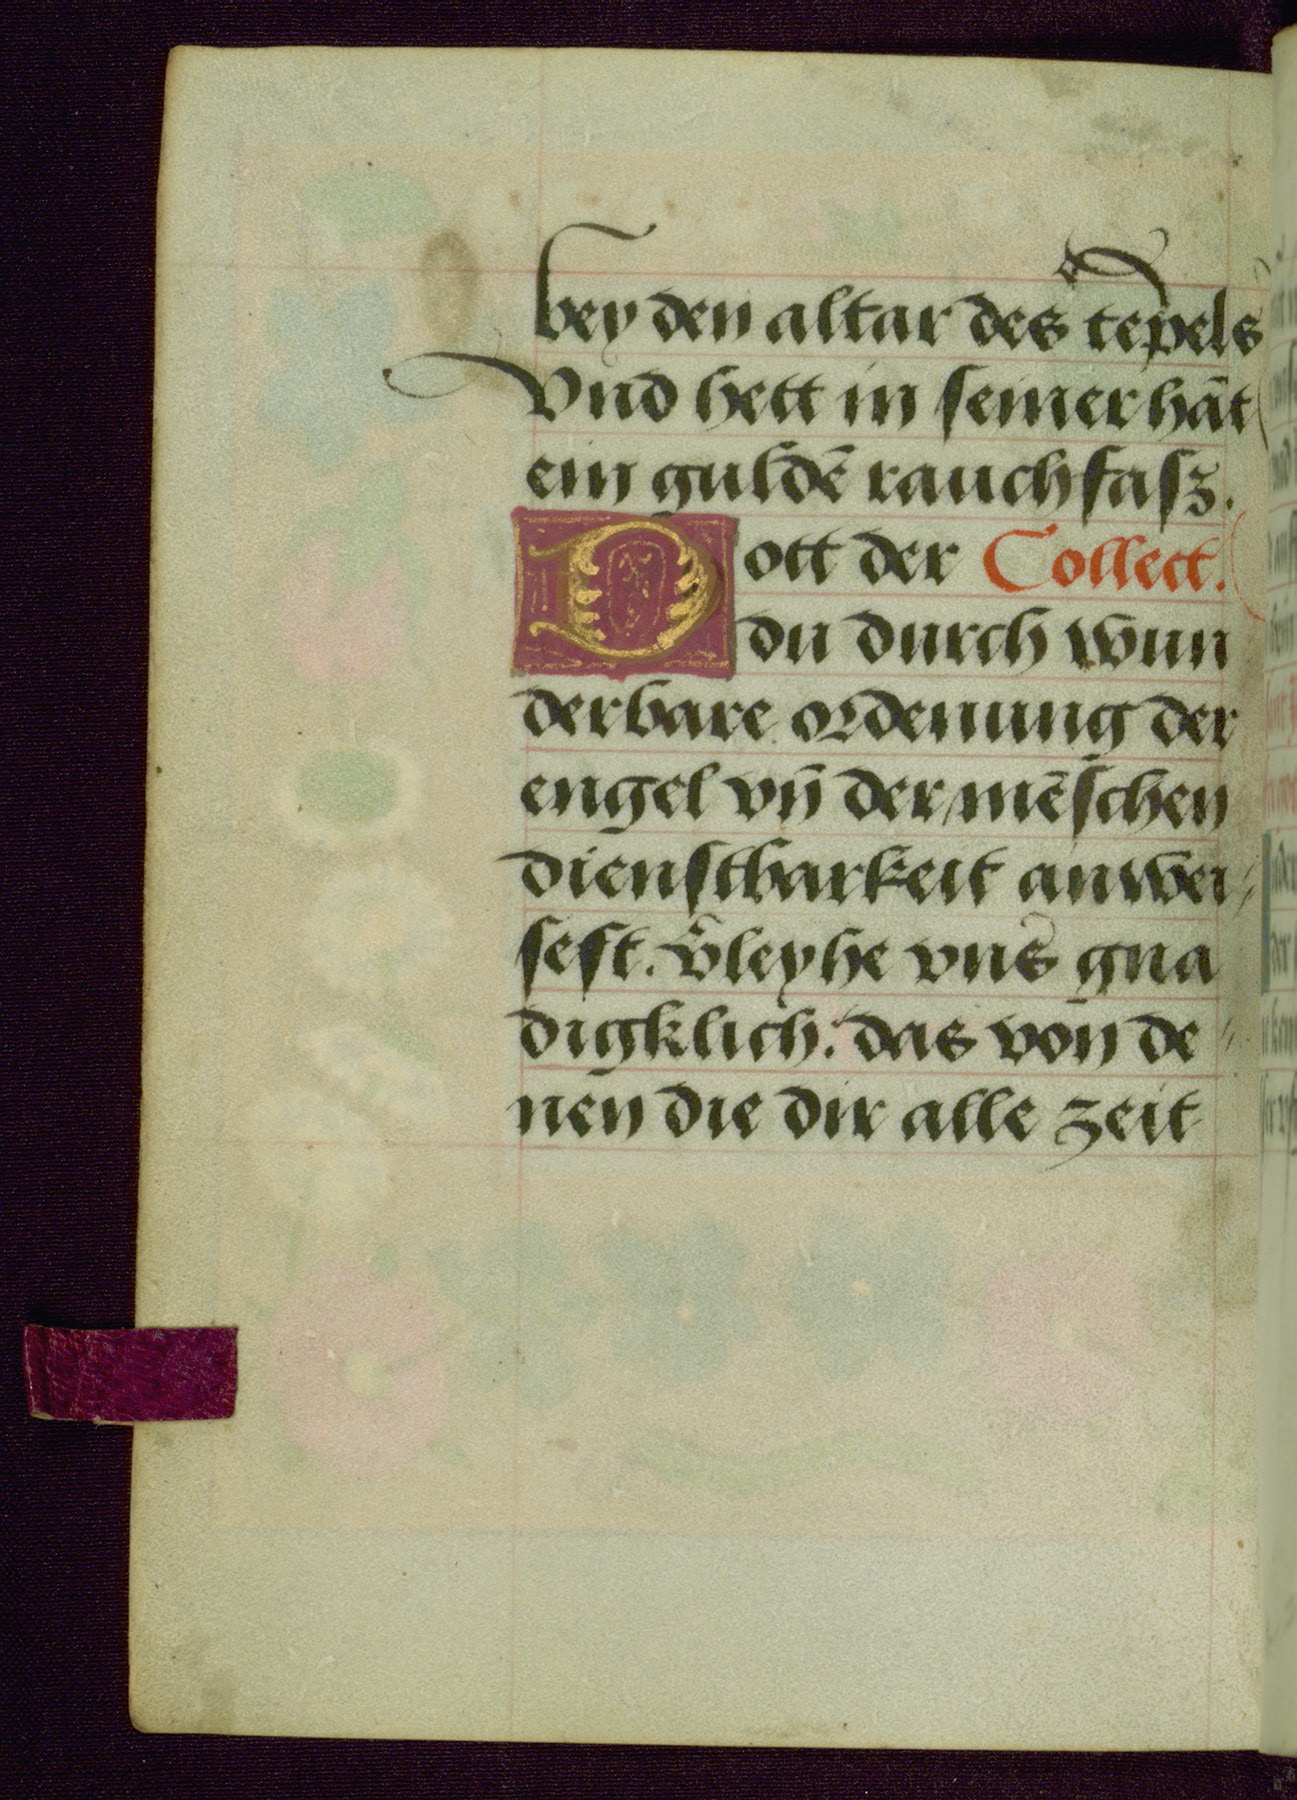 bey den altar des tep̄els
Vnd hett in seiner hāt
ein guldē rauchfasz.
Dott der Collect.
du durch wun
derbare ordenung der
engel vn̄ der mēschen
dienstbarkeit anwei
sest. V̄leyhe vns gna
digklich: das von de
nen die dir alle zeit